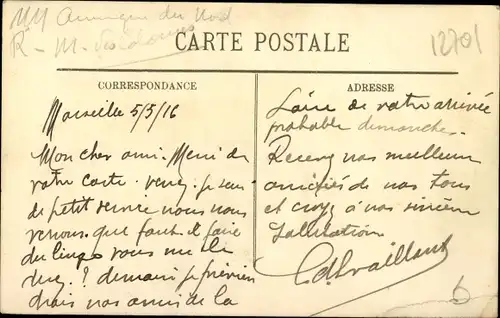 CARTE POSTALE
12701
CORRESPONDANCE
Marseille 5/5/16
Mon cher ami. Merci de
votre carte. venez. je suis
de petit service nous nous
verrons. que faut il faire
du linge vous me le
direz? demain je
drais nos amis de la
ADRESSE
Loire de votre arrivée
probable dimanche.
Recevez nos meilleures
amitiés de nos tous
et croyez à nos sincères
Salutations
6